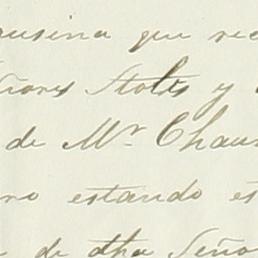 ausina que rec
ñores Stoles y
de Mr. Chaus
ro estando es
de dha Seño